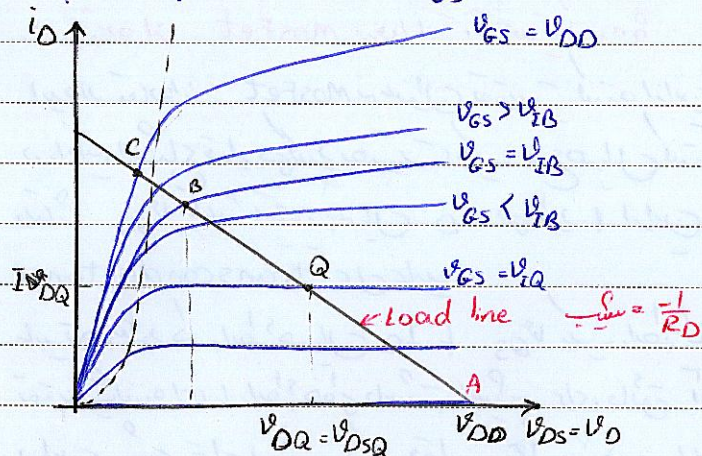 i_D
v_GS = v_DD
v_GS > v_IB
v_GS = v_IB
v_GS < v_IB
C
B
Q
v_GS = v_IQ
I_DQ
Load line
شیب = -1/R_D
A
v_DQ = v_DSQ
v_DD
v_DS = v_D